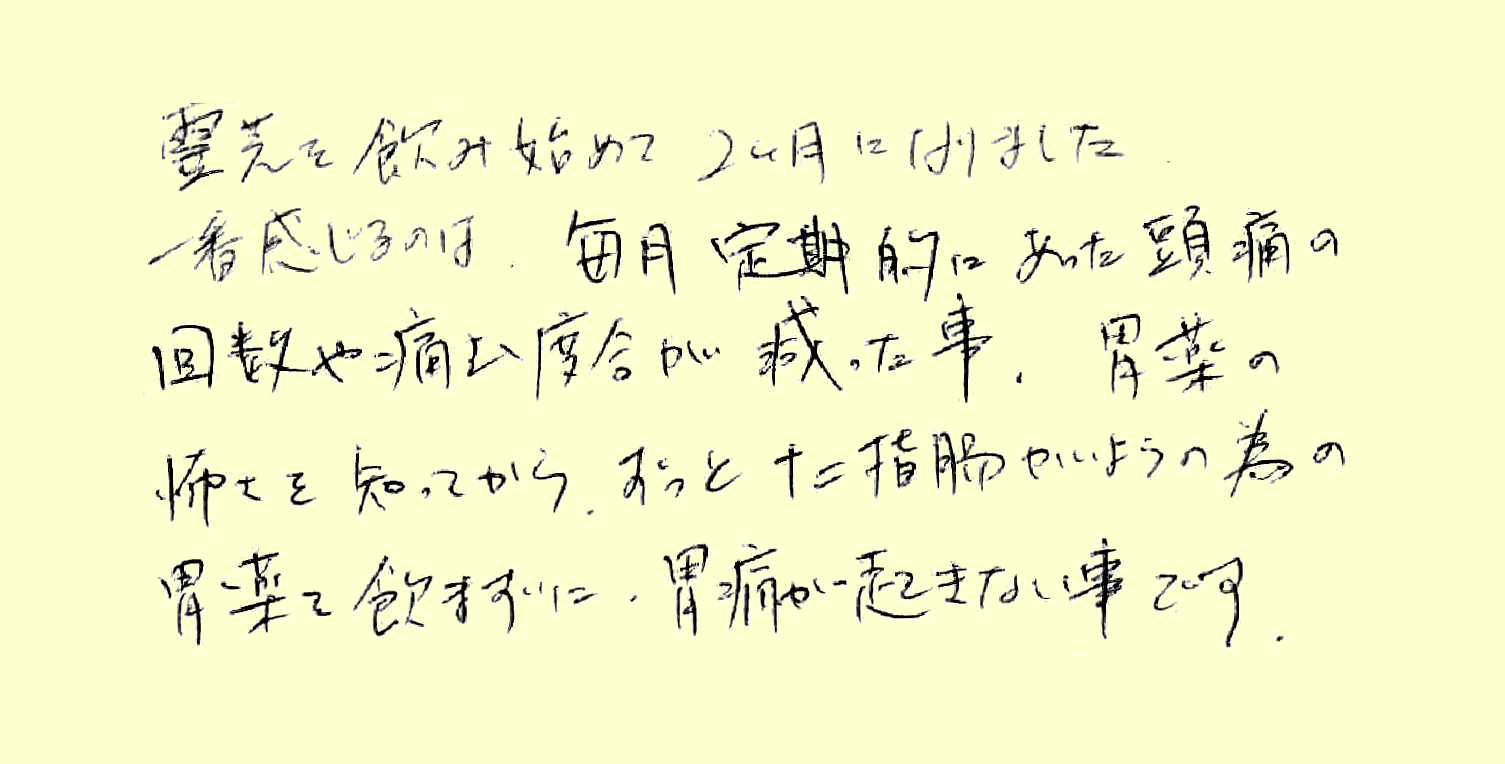 霊芝を飲み始めて2ヶ月になりました
一番感じるのは、毎月定期的にあった頭痛の
回数や痛む度合が減った事、胃薬の
怖さを知ってから、ずっと十二指腸かいようの為の
胃薬を飲まずに、胃痛が起きない事です.